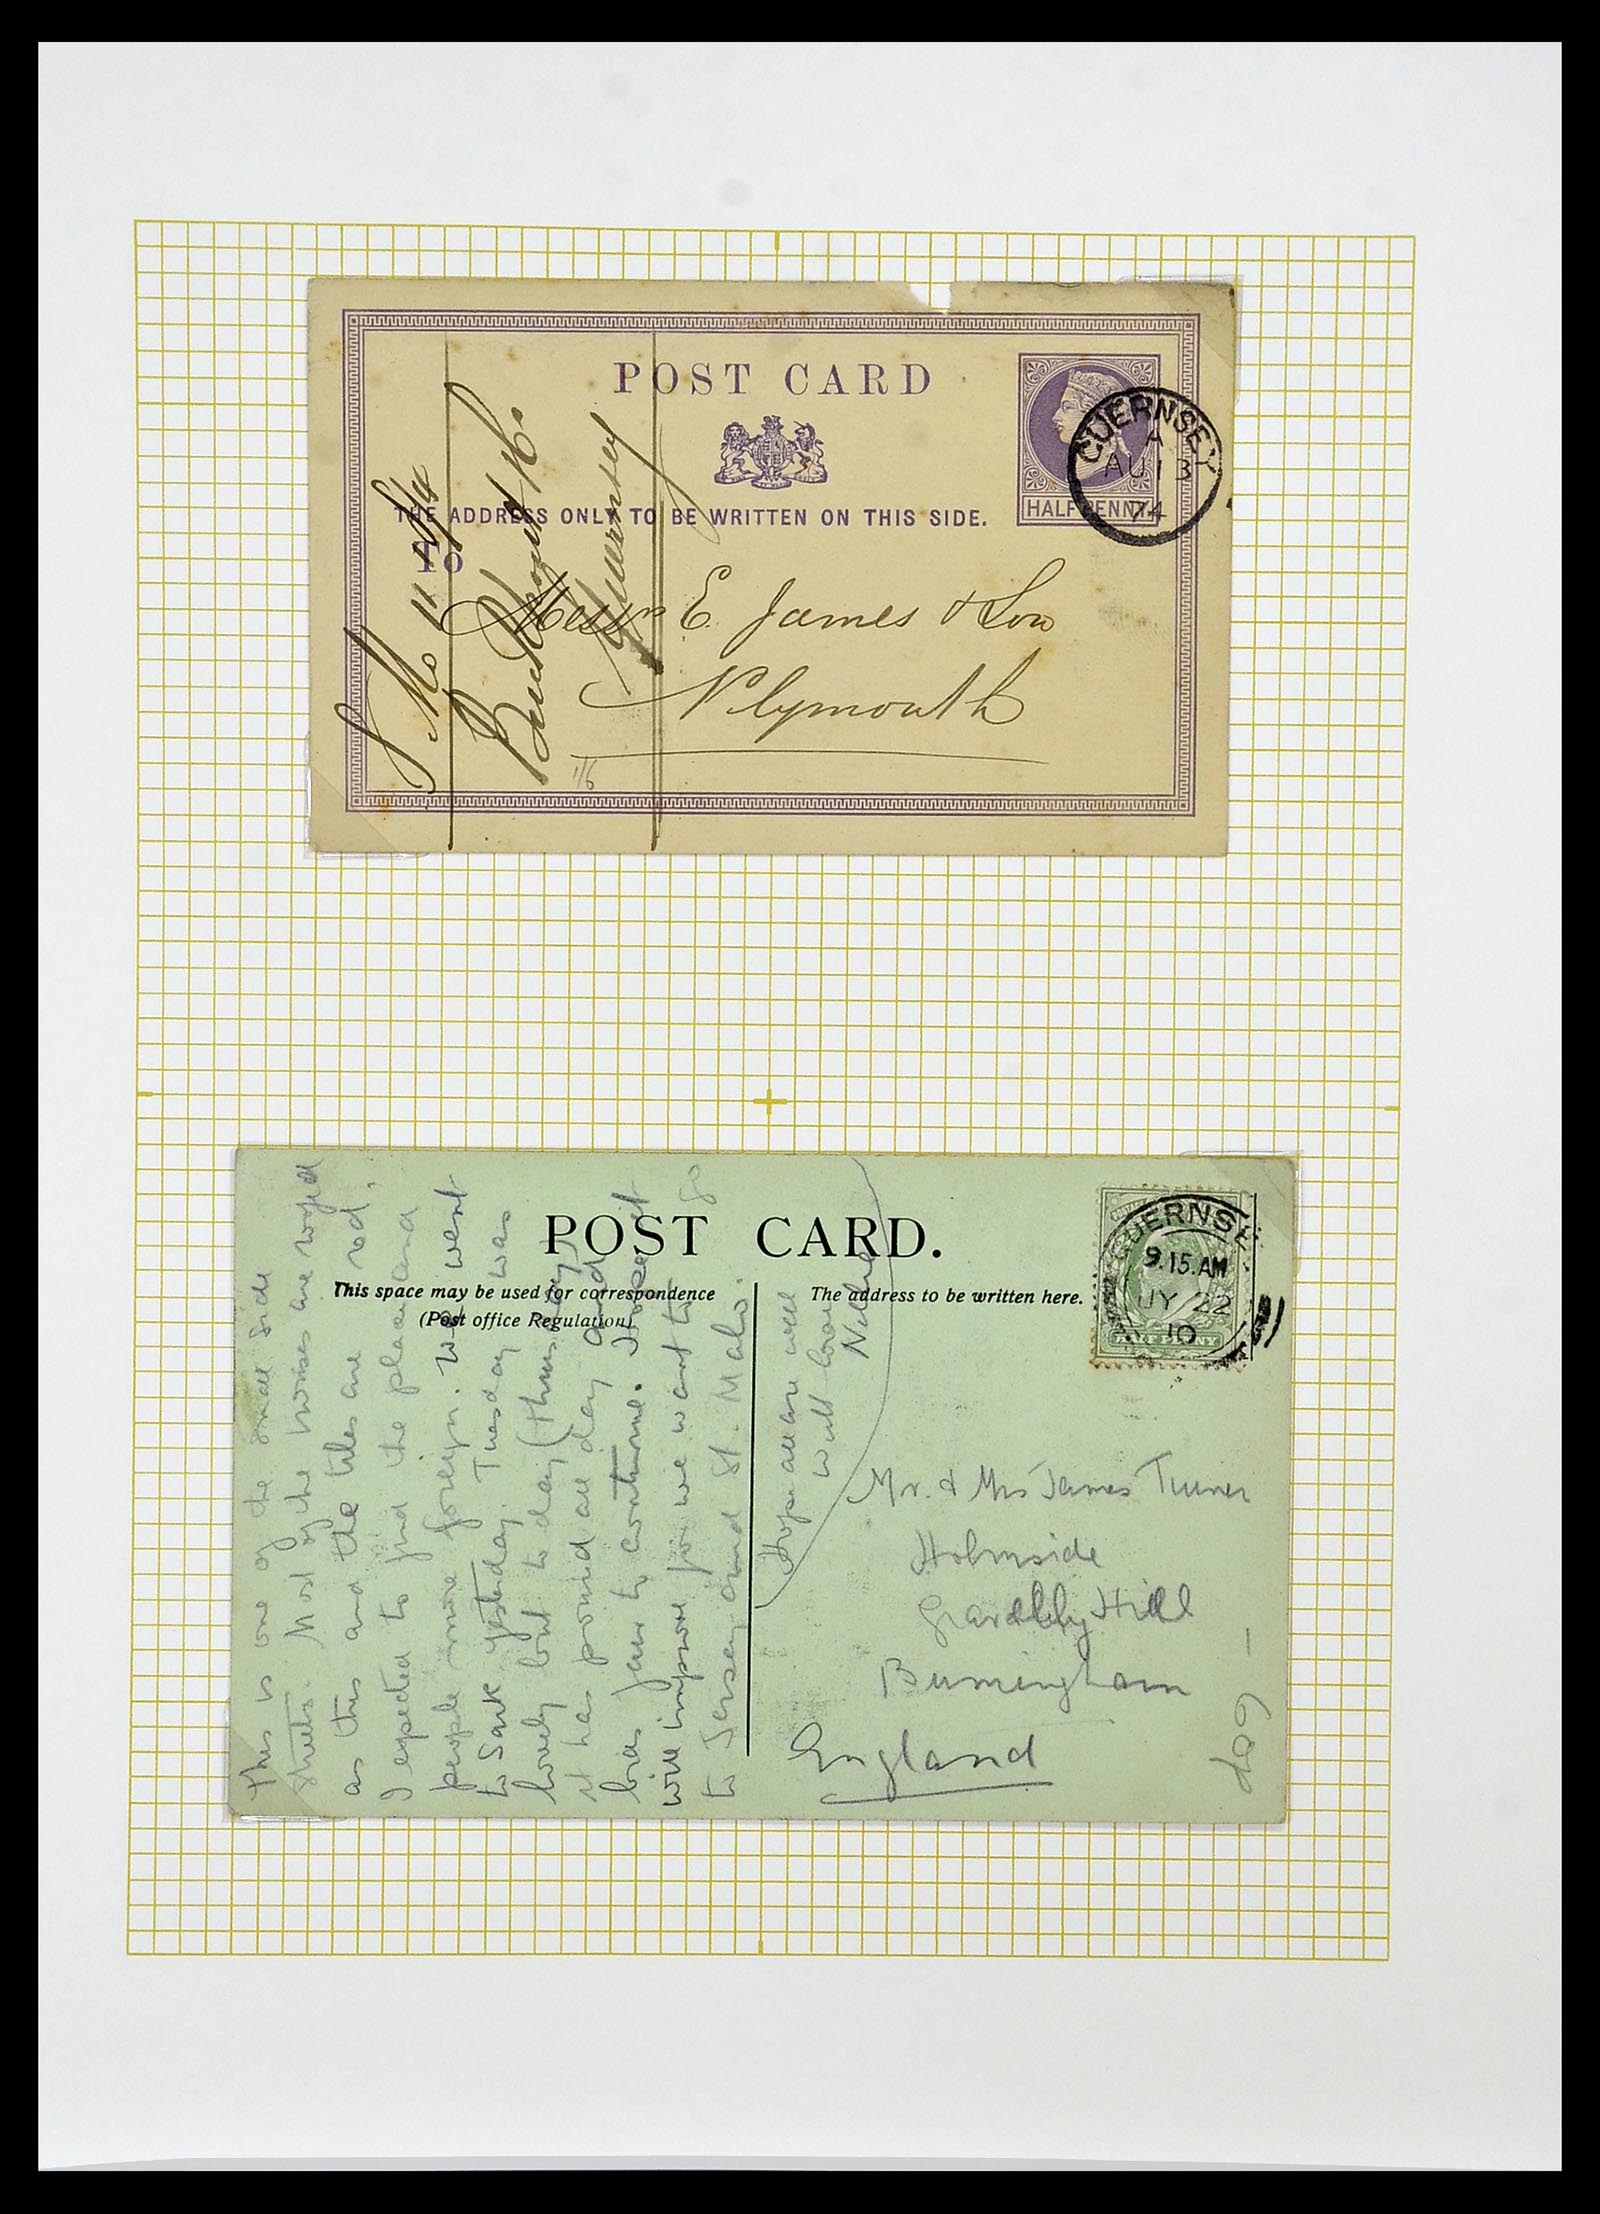 POST CARD
THE ADDRESS ONLY TO BE WRITTEN ON THIS SIDE.
To
HALFPENNY
GUERNSEY
A
AU 13
74
Messrs E. James & Son
Plymouth
Guernsey
1/6
POST CARD.
This space may be used for correspondence
(Post office Regulation)
The address to be written here.
GUERNSEY
9.15.AM
JY 22
10
HALF PENNY
This is one of the small side
streets. Most of the houses are
as this and the tiles are red.
I expected to find the place and
people more foreign. We went
to Sark yesterday. Tuesday was
lovely but to day (thursday)
it has poured all day and
bids fair to continue. Hope it
will improve for we want to go
to Jersey and St. Malo.
Hope all are well
with love
Nellie
Mr. & Mrs James Turner
Holmside
Gravelly Hill
Birmingham
England